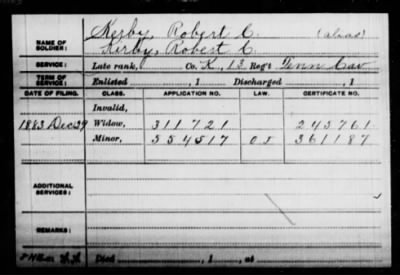 NAME OF SOLDIER: Kerby, Robert C. (alias)
Kirby, Robert C.
SERVICE: Late rank, Co. K, 13 Reg't Tenn Cav
TERM OF SERVICE: Enlisted , 1 Discharged , 1
DATE OF FILING. CLASS. APPLICATION NO. LAW. CERTIFICATE NO.
Invalid,
1883 Dec 29 Widow, 311721 243761
Minor, 354517 361187
ADDITIONAL SERVICES:
REMARKS:
Died , 1 , at